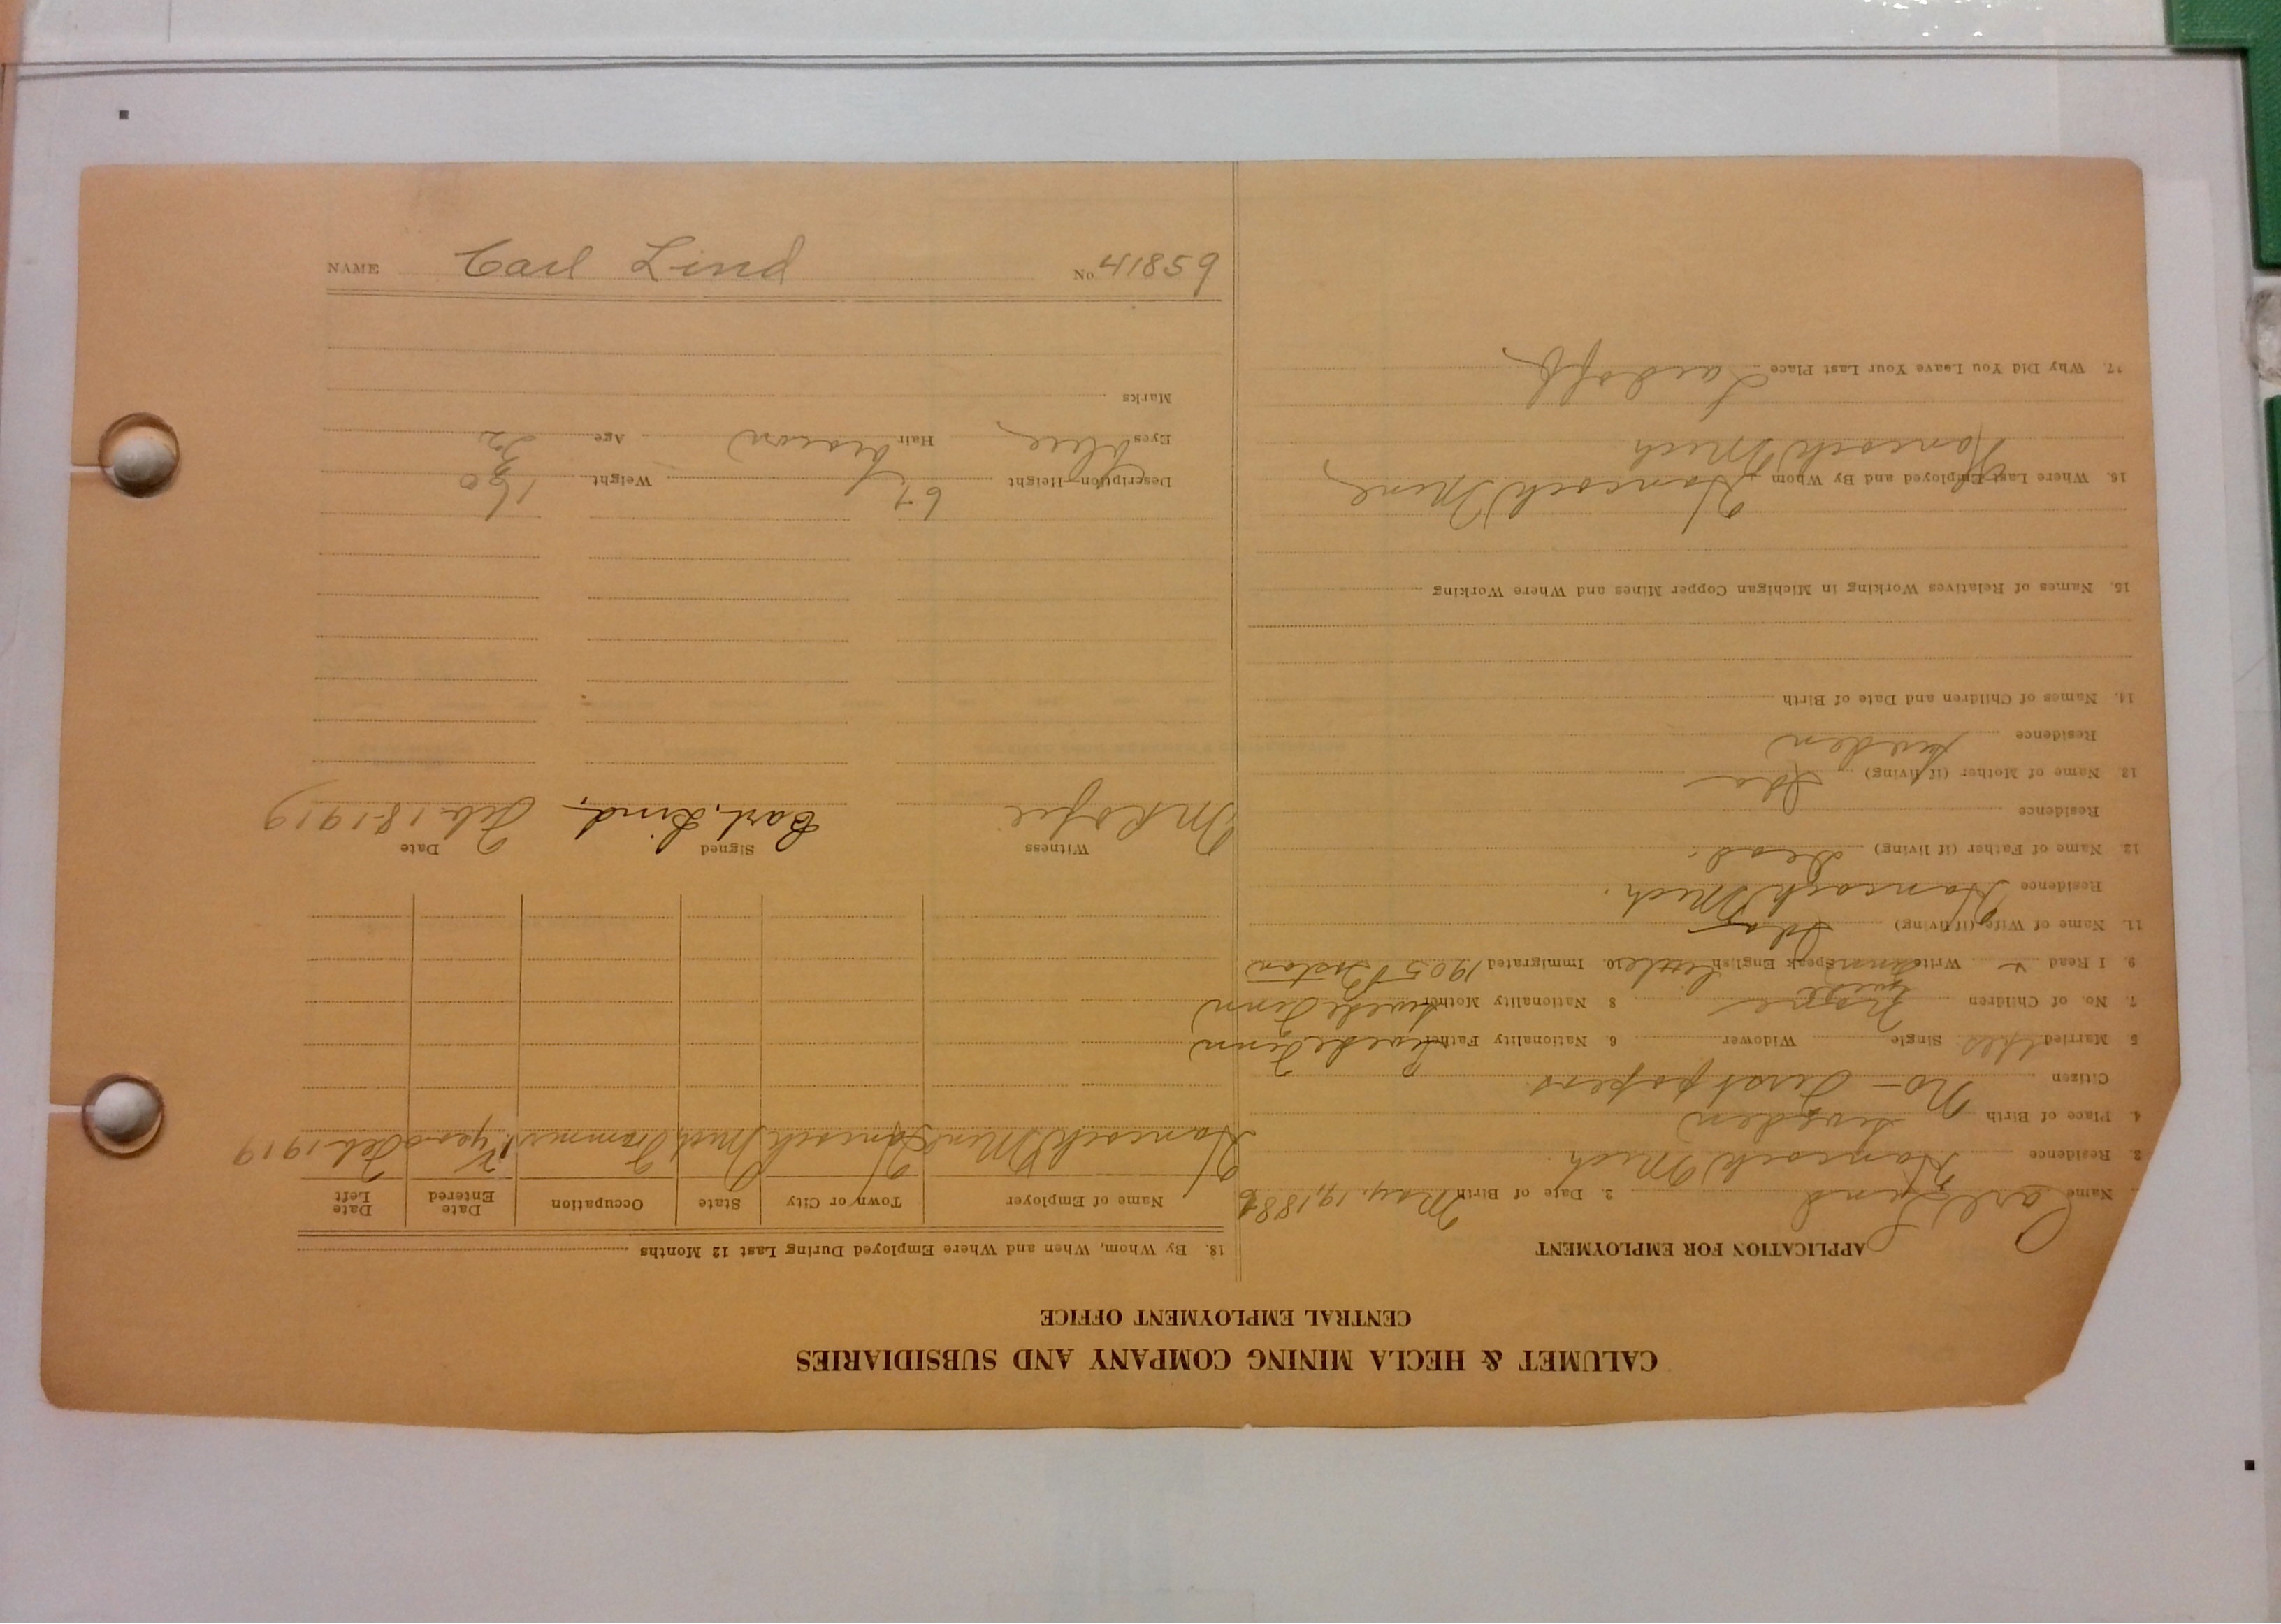 NAME Carl Lind No 41859
CALUMET & HECLA MINING COMPANY AND SUBSIDIARIES
CENTRAL EMPLOYMENT OFFICE
APPLICATION FOR EMPLOYMENT
Name Carl Lind 2. Date of Birth May. 19, 188
3. Residence Hancock Mich.
4. Place of Birth Sweden
Citizen No - First papers
5 Married Yes Single Widower 6. Nationality Father Swede Finn
7. No. of Children None 8 Nationality Mother Swede Finn
9. I Read Write Speak English Little 10. Immigrated 1905 Boston
11. Name of Wife (if living) Ida
Residence Hancock Mich.
12. Name of Father (if living) Dead.
Residence
13. Name of Mother (if living)
Residence Sweden
14. Names of Children and Date of Birth
15. Names of Relatives Working in Michigan Copper Mines and Where Working
16. Where Last Employed and By Whom Hancock Mine
Hancock Mich
17. Why Did You Leave Your Last Place Laid off
18. By Whom, When and Where Employed During Last 12 Months
Name of Employer Town or City State Occupation Date Entered Date Left
Hancock Mine Hancock Mich Trammer years Feb 1919
Witness Signed Date
Carl. Lind, Feb-18-1919
Description—Height 67 Weight 160
Eyes blue Hair brown Age 32
Marks